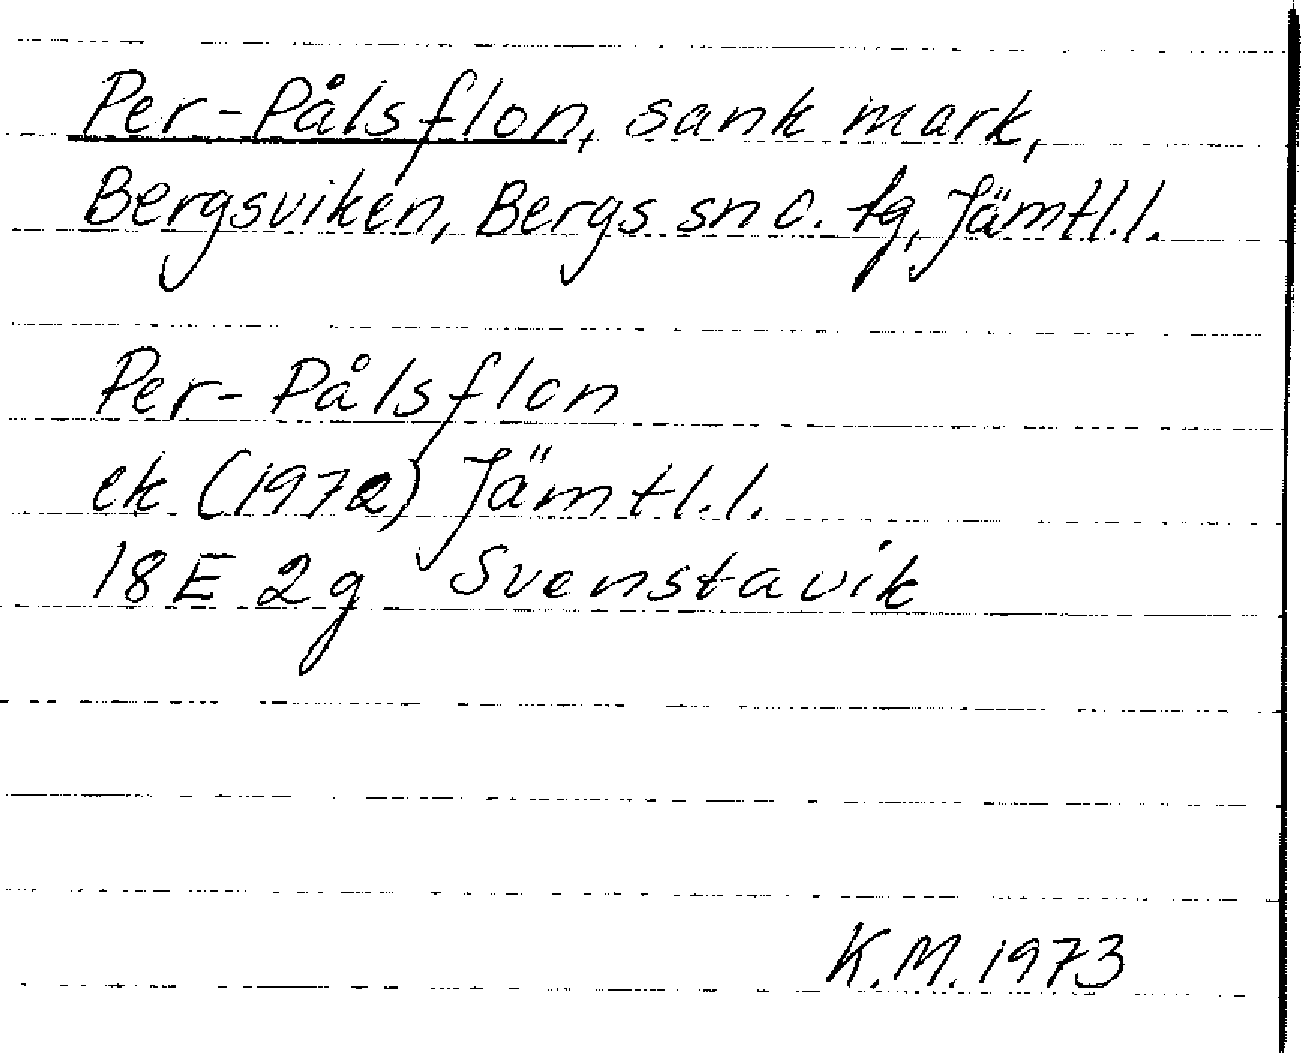 Per-Pålsflon, sank mark,
Bergsviken, Bergs sn o. tg, Jämtl.l.
Per-Pålsflon
ek (1972) Jämtl.l.
18E 2g Svenstavik
K.M. 1973